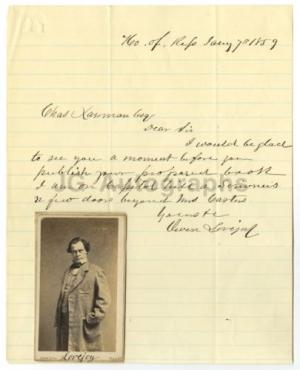 Ho. of. Reps Jany 7th 1859
Chas Lanman Esq
Dear Sir
I would be glad
to see you a moment before you
publish your proposed book
I am on Capitol Hill
a few doors beyond Mrs Carters
Yours &c
Owen Lovejoy
Lovejoy
JG Autographs